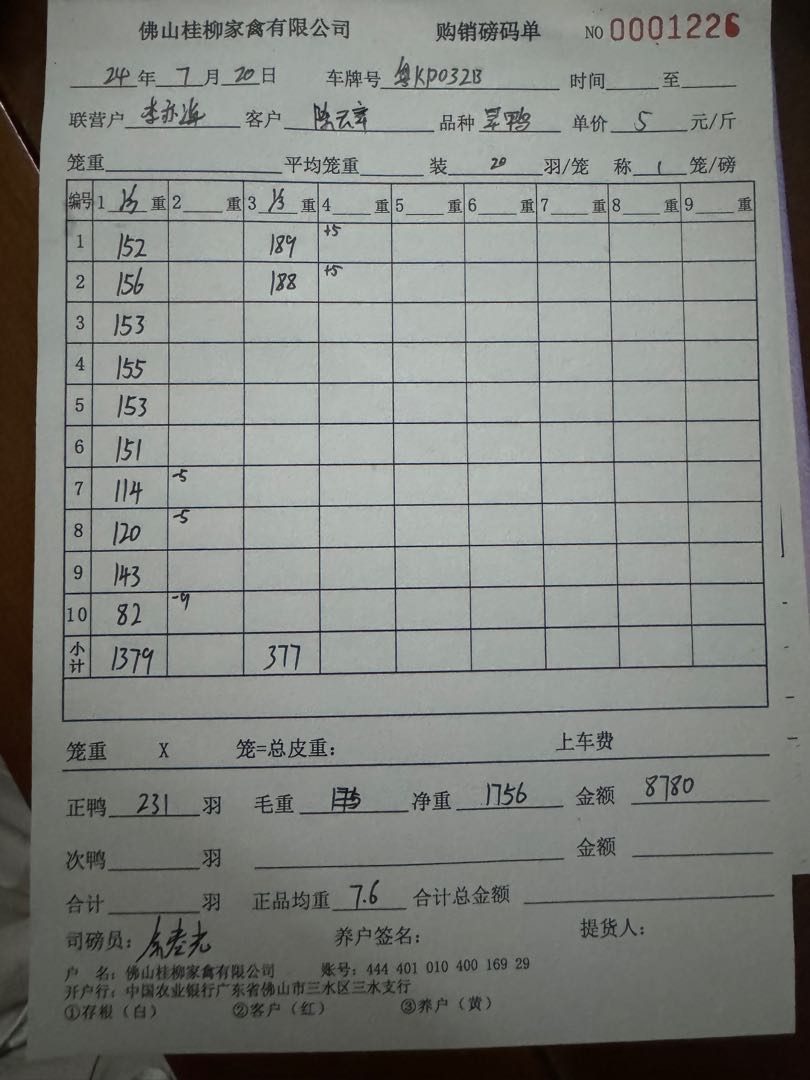 佛山桂柳家禽有限公司 购销磅码单 NO 0001226
24 年 7 月 20 日 车牌号 粤KP032B 时间 至
联营户 客户 品种 单价 5 元/斤
笼重 平均笼重 装 20 羽/笼 称 1 笼/磅
编号 1 重 2 重 3 重 4 重 5 重 6 重 7 重 8 重 9 重
1 152 189 +5
2 156 188 +5
3 153
4 155
5 153
6 151
7 114 -5
8 120 -5
9 143
10 82 -9
小计 1379 377
笼重 X 笼=总皮重： 上车费
正鸭 231 羽 毛重 净重 1756 金额 8780
次鸭 羽 金额
合计 羽 正品均重 7.6 合计总金额
司磅员： 养户签名： 提货人：
户 名：佛山桂柳家禽有限公司 账号：444 401 010 400 169 29
开户行：中国农业银行广东省佛山市三水区三水支行
①存根（白） ②客户（红） ③养户（黄）